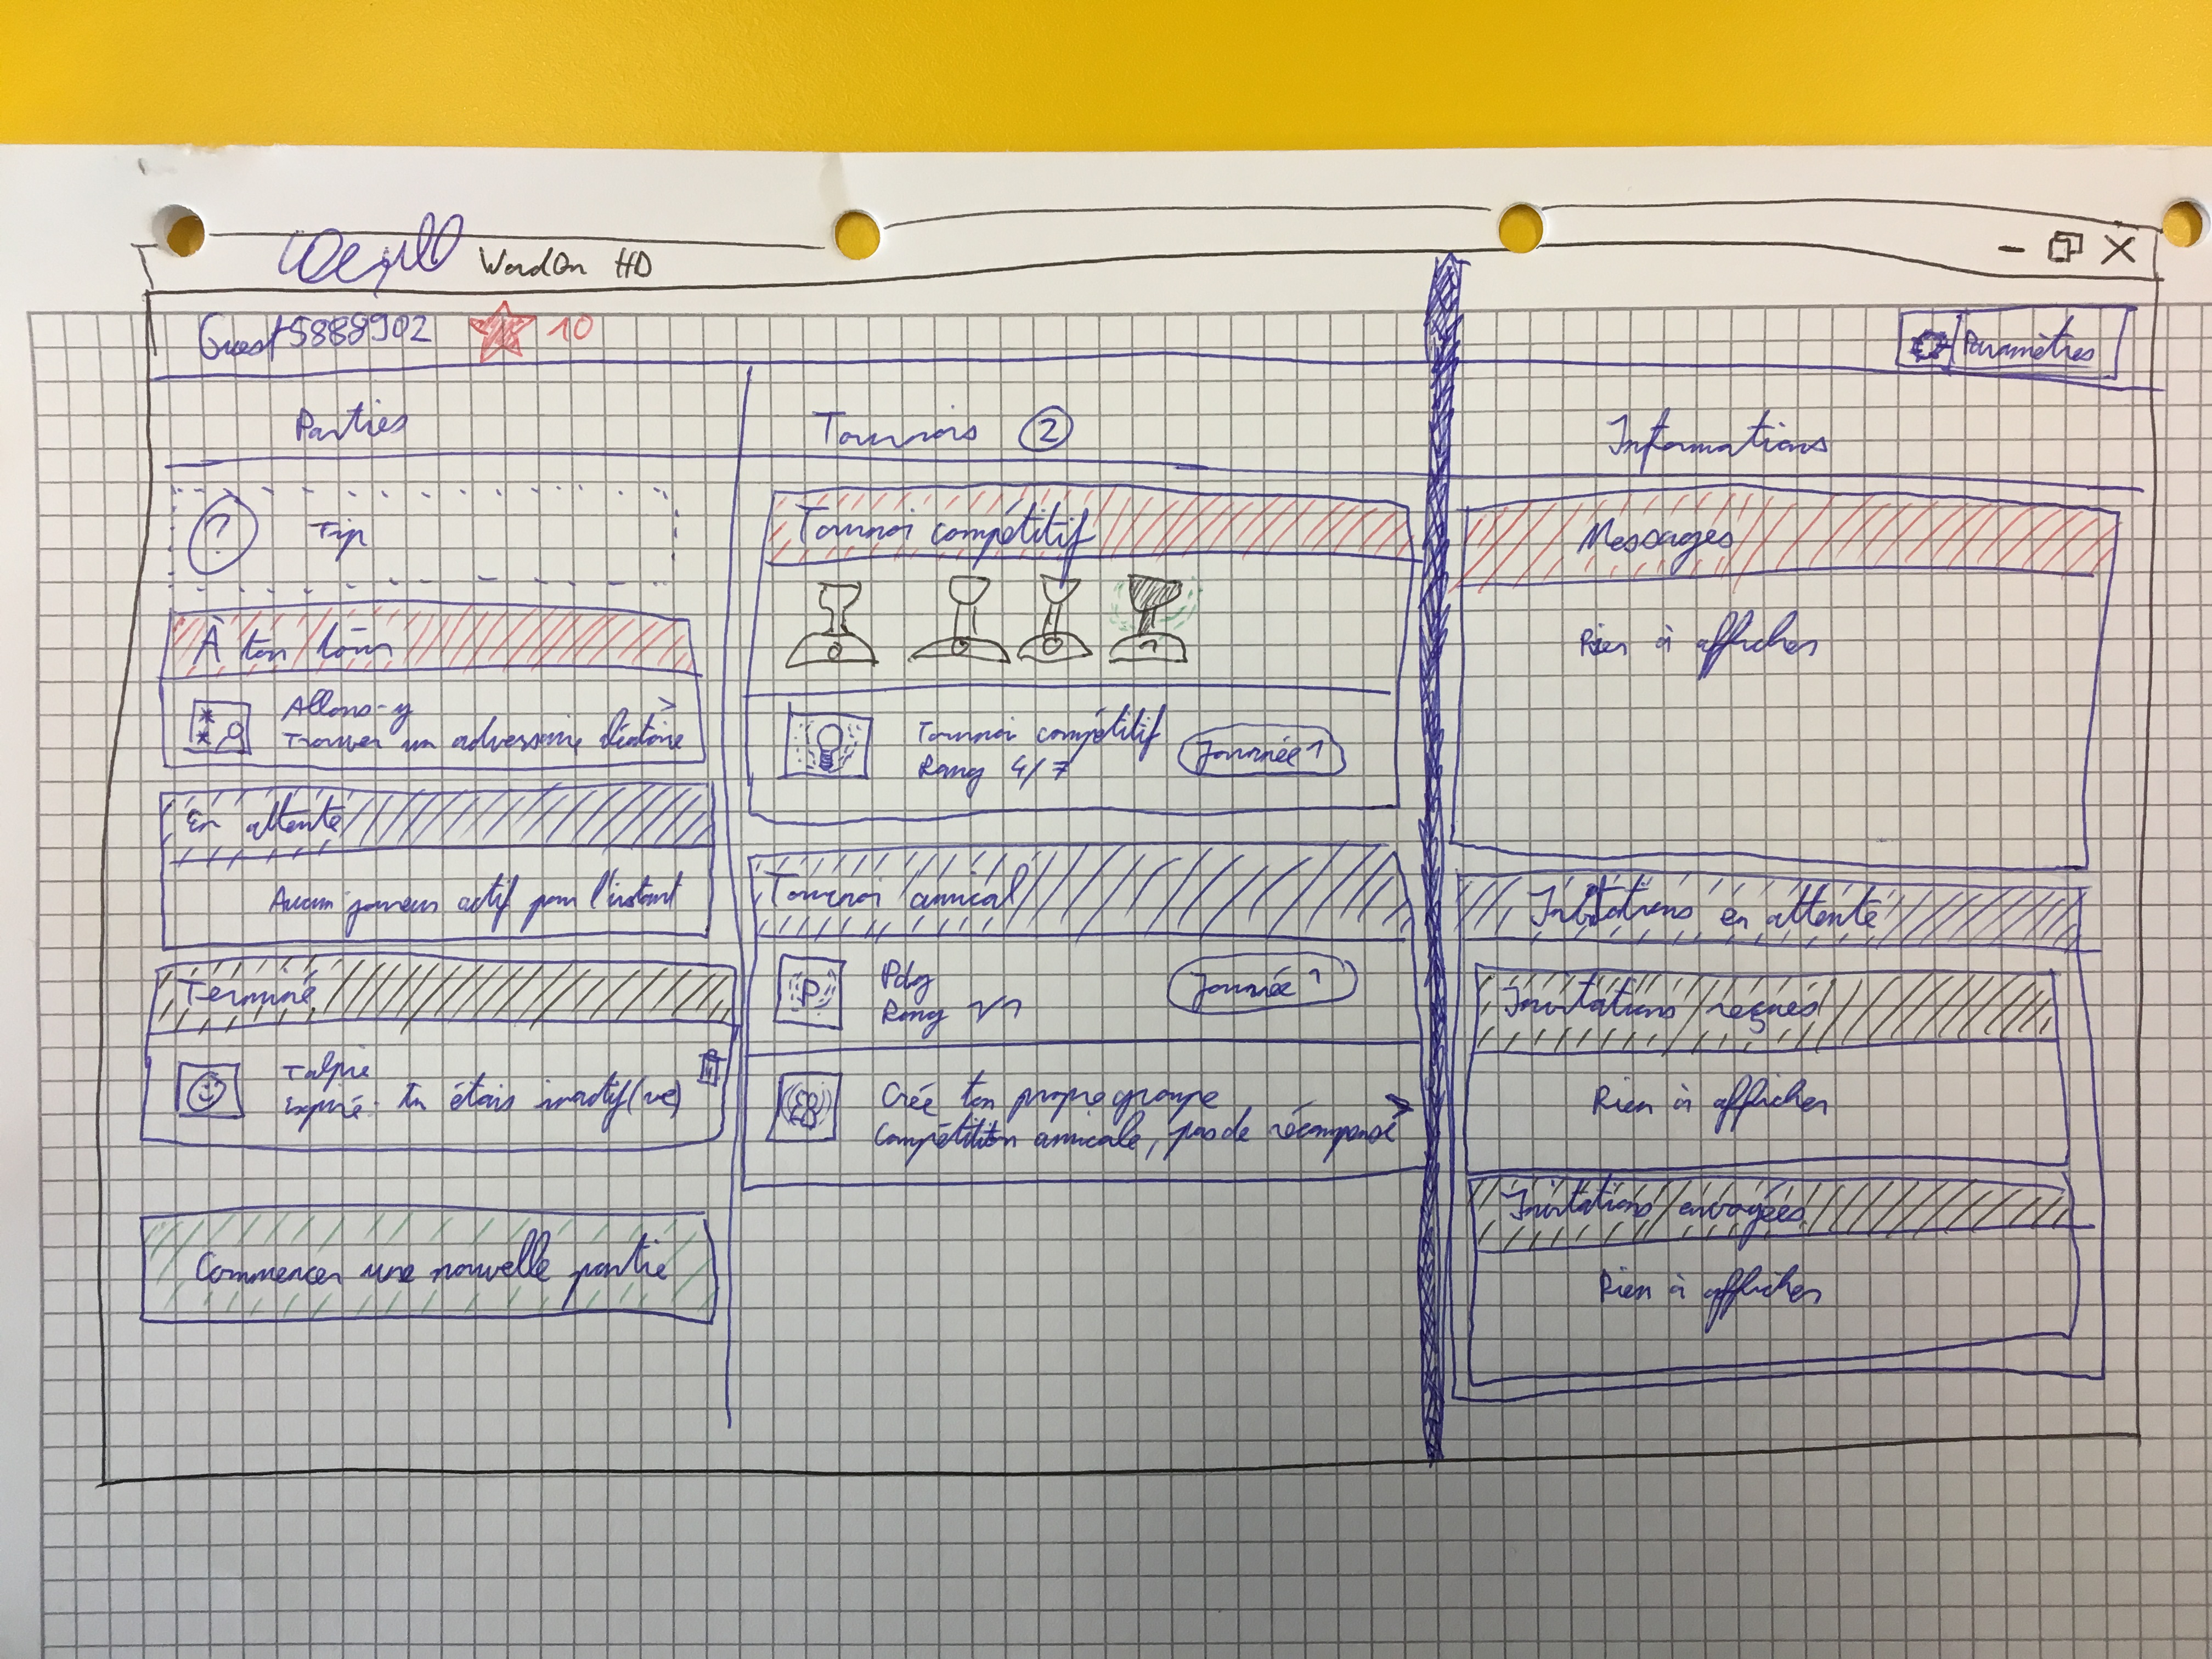 WordOn HD
Guest58889902 10
Paramètres
Parties
Tip
A ton tour
Allons-y
Trouver un adversaire aléatoire >
En attente
Aucun joueur actif pour l'instant
Terminé
Talpie
expiré. tu étais inactif(ve)
Commencer une nouvelle partie
Tournois 2
Tournoi compétitif
Tournoi compétitif
Rang 4/7
Journée 1
Tournoi amical
Pdg
Rang 1/1
Journée 1
Crée ton propre groupe
Compétition amicale, pas de récompense
Informations
Messages
Rien à afficher
Invitations en attente
Invitations reçues
Rien à afficher
Invitations envoyées
Rien à afficher